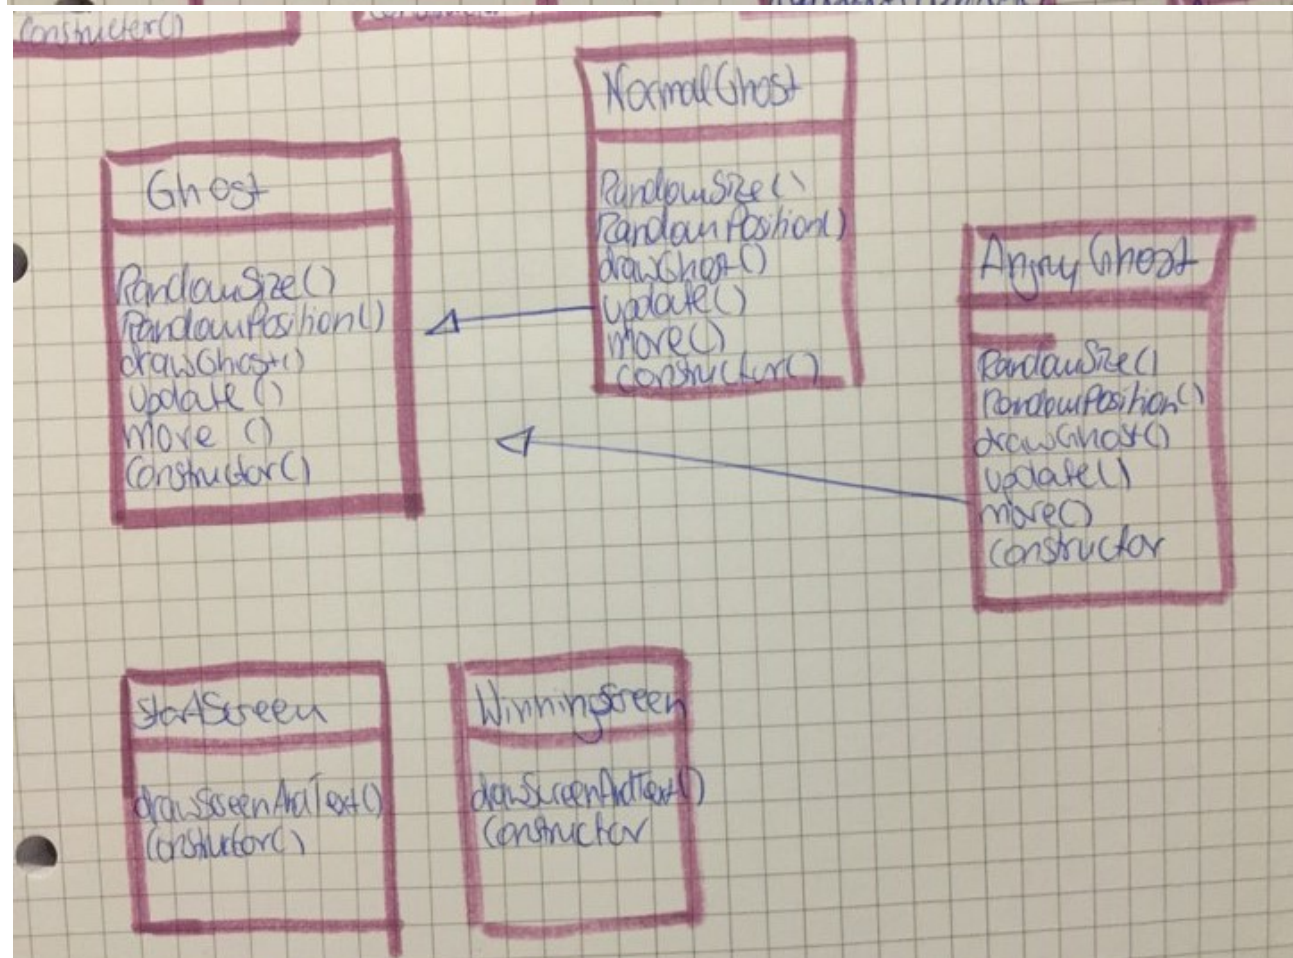 Constructer()
Ghost
RandomSize()
RandomPosition()
drawGhost()
update()
move ()
Constructor()
NormalGhost
RandomSize()
RandomPosition()
drawGhost()
update()
move()
Constructor()
AngryGhost
RandomSize()
RandomPosition()
drawGhost()
update()
move()
Constructor
StartScreen
drawScreenAndText()
Constructor()
WinningScreen
drawScreenAndText()
Constructor